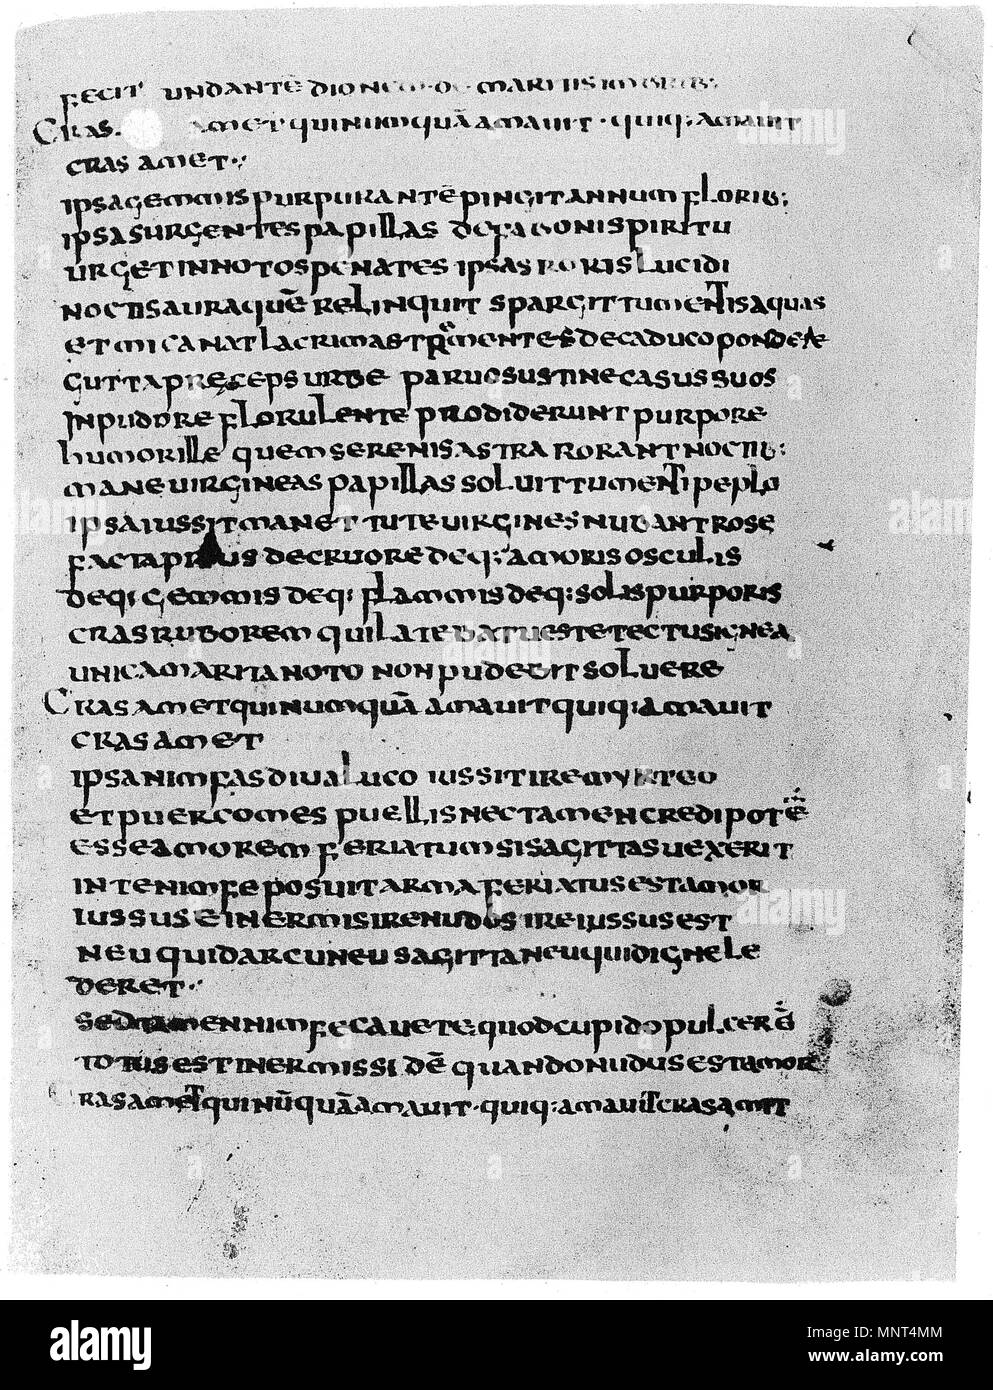 FECIT UNDANTĒ DIONEM DE MARITIS IMBRIB:
CRAS. AMET QUI NUMQUĀ AMAVIT · QUIQ: AMAVIT
CRAS AMET·:
IPSA GEMMIS PURPURANTĒ PINGIT ANNUM FLORIB:
IPSA SURGENTES PAPILLAS DE FABONI SPIRITU
URGET IN NOTOS PENATES IPSAS RORIS LUCIDI
NOCTIS AURA QUĒ RELINQUIT SPARGIT TUMENTIS AQUAS
ET MICANAT LACRIMAS TREMENTES DECADUCO PONDERE
GUTTA PRECEPS URBE PARVO SUSTINE CASUS SUOS
IN PUDORE FLORULENTE PRODIDERUNT PURPORE
HUMOR ILLE QUEM SERENIS ASTRA RORANT NOCTIB:
MANE VIRGINEAS PAPILLAS SOLVIT TUMENTI PEPLO
IPSA IUSSIT MANET TUTE VIRGINES NUBANT ROSE
FACTA PRIUS DE CRUORE DEQ: AMORIS OSCULIS
DEQ: GEMMIS DEQ: FLAMMIS DEQ: SOLIS PURPORIS
CRAS RUBOREM QUI LATEBAT VESTE TECTUS IGNEA
UNICA MARITA NOTO NON PUDEBIT SOLVERE
CRAS AMET QUI NUMQUĀ AMAVIT QUIQ: AMAVIT
CRAS AMET
IPSA NIMFAS DIVA LUCO IUSSIT IRE MYRTEO
ET PUER COMES PUELLIS NEC TAMEN CREDI POTĒ
ESSE AMOREM FERIATUM SI SAGITTAS VEXERIT
INTE NIMFE POSUIT ARMA FERIATUS EST AMOR
IUSSUS E INERMIS IRE NUDUS IRE IUSSUS EST
NEU QUID ARCU NEU SAGITTA NEU QUID IGNE LE
DERET·:
SED TAMEN NIMFE CAVETE QUOD CUPIDO PULCER Ē
TOTUS EST INERMIS SI DĒ QUANDO NUDUS EST AMOR
CRAS AMET QUI NŪQUĀ AMAVIT · QUIQ: AMAVIT CRAS AMET
alamy
Image ID: MNT4MM
www.alamy.com